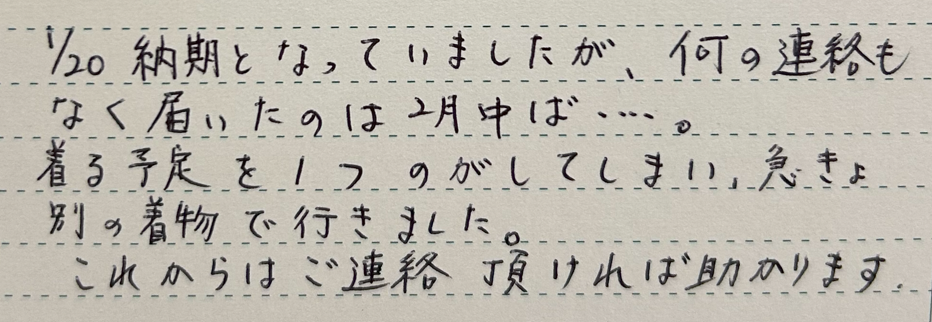 1/20 納期となっていましたが、何の連絡も
なく届いたのは2月中ば……。
着る予定を1つのがしてしまい、急きょ
別の着物で行きました。
これからはご連絡頂ければ助かります.